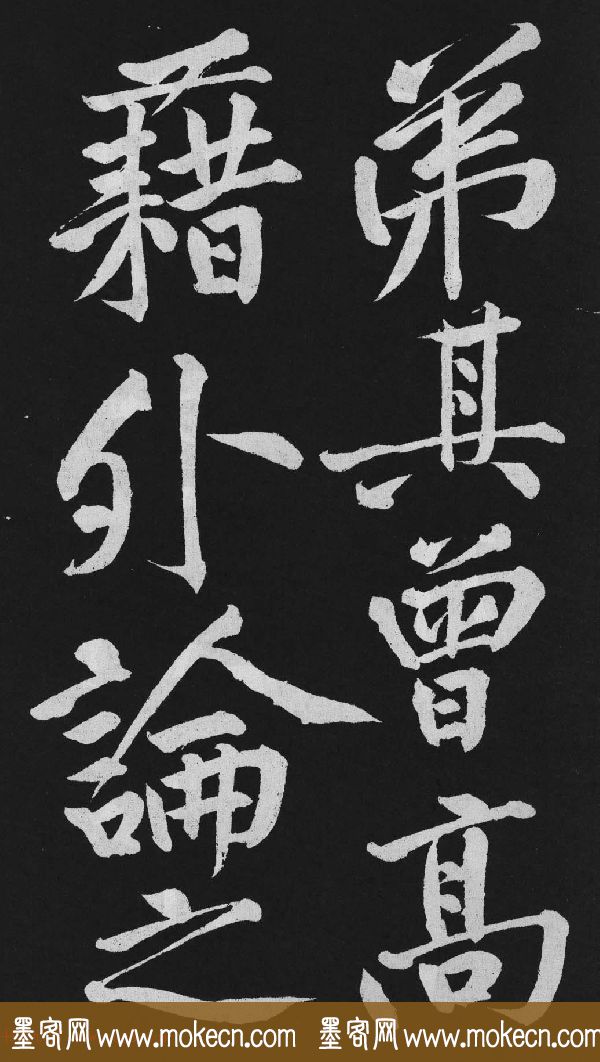 弟其曾髙
藉外論之
墨客网 www.mokecn.com 墨客网 www.mokecn.com